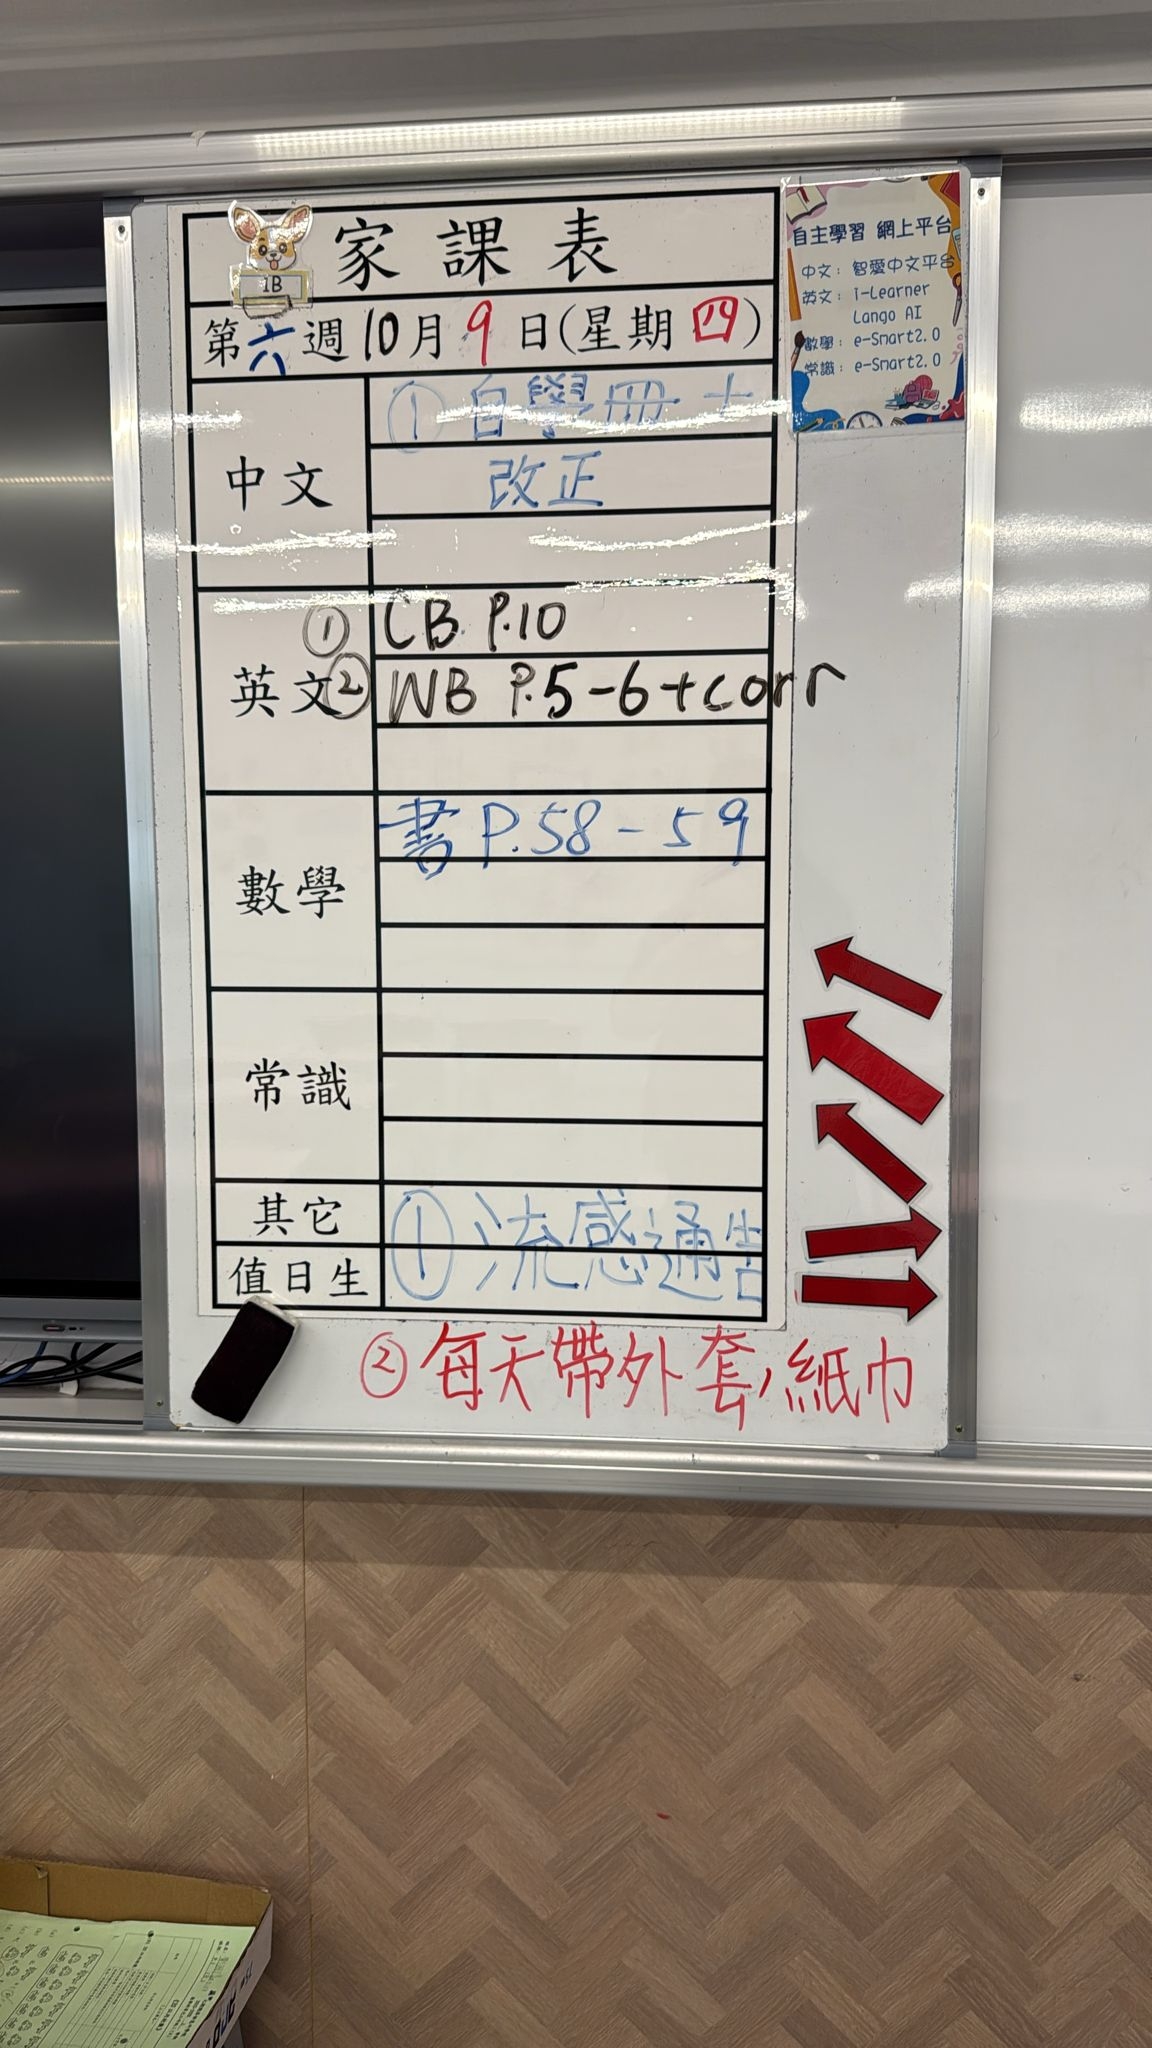 家課表
1B
第六週10月9日(星期四)
中文
① 自學冊 +
改正
英文
① CB P.10
② WB P.5-6+corr
數學
書 P.58-59
常識
其它
值日生
① 流感通告
② 每天帶外套,紙巾
自主學習 網上平台
中文: 智愛中文平台
英文: i-Learner
Lango AI
數學: e-Smart2.0
常識: e-Smart2.0